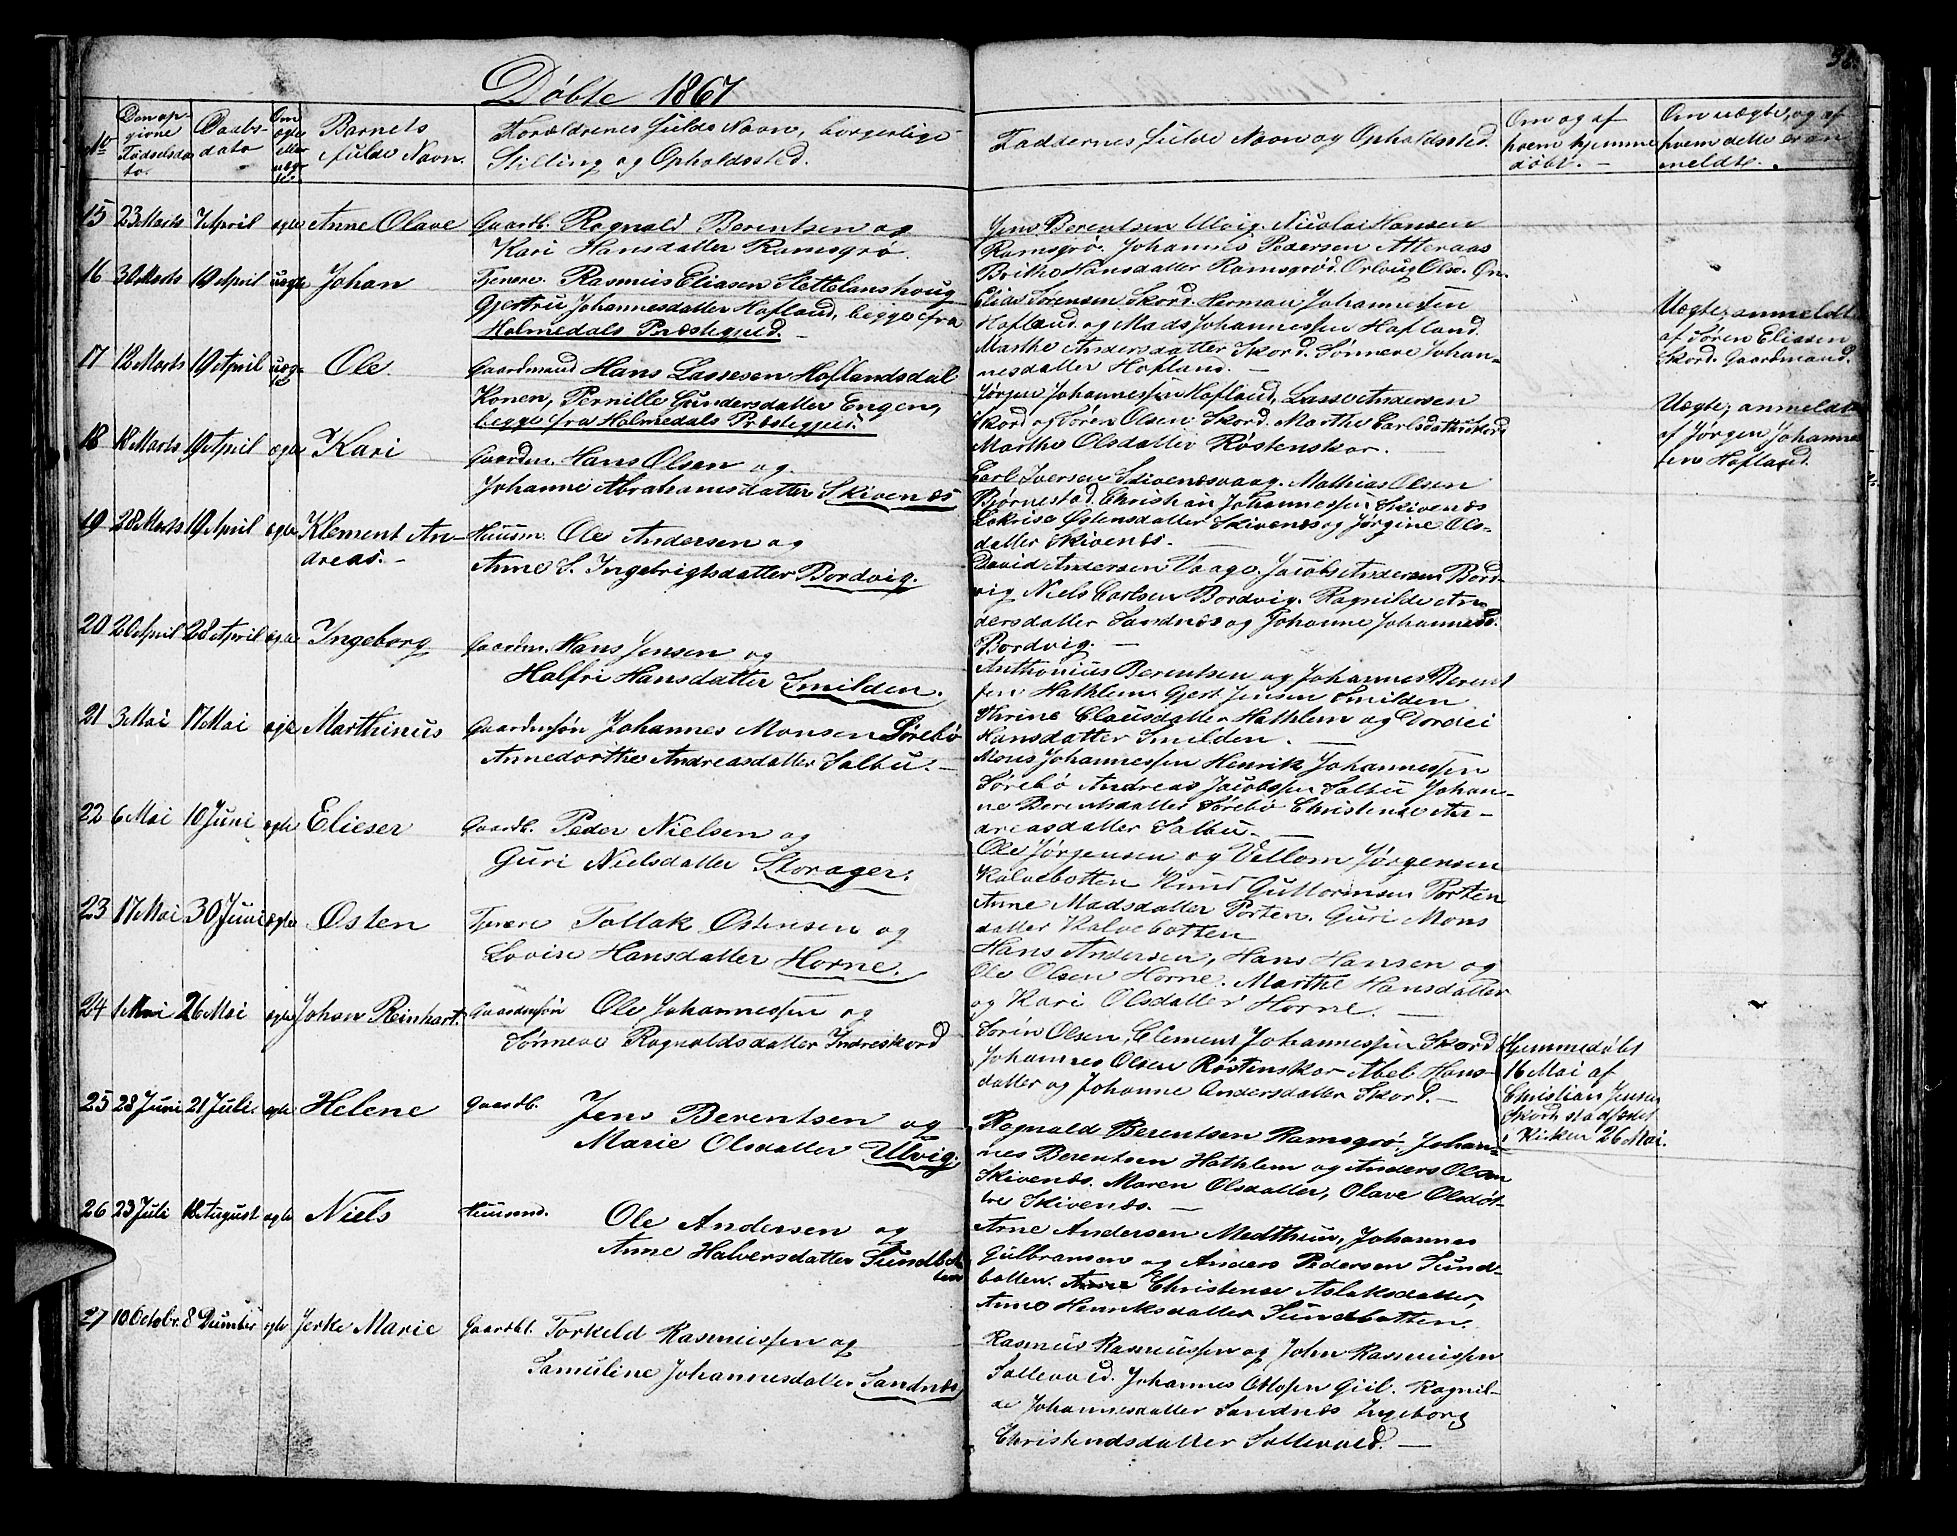 Døbte 1867
36.
No
Den op-
givne
Fødselsda-
to.
Daabs-
dato
Om
ægte
eller
uæg-
te.
Barnets
fulde Navn.
Forældrenes fulde Navn, borgerlige
Stilling og Opholdssted.
Faddernes fulde Navn og Opholdssted.
Om og af
hvem hjemme
døbt. -
Om uægte, og af
hvem dette er an
meldt.
15 23 Marts 7 April ægte Anne Olave Gaardb. Ragnald Berentsen og
Kari Hansdatter Ramsgrø.
Jens Berentsen Ulvig. Nicolai Hansen
Ramsgrø. Johannes Pedersen Atteraas
Brithe Hansdatter Ramsgrød.
16 30 Marts 19 April uægte Johan Tjenere. Rasmus Eliasen
Gjertru Johannesdatter Hofland, begge fra
Holmedals Præstegjeld. -
Elias Sørensen Skord. Herman Johannessen
Hofland og Mads Johannessen Hofland.
Marthe Andersdatter Skord. Sønneve Johan-
nesdatter Hofland. -
Uægte; anmeldt
af Søren Eliasen
Skord. Gaardmand.
17 12 Marts 19 April uæg-
te Ole Gaardmand Hans Lassesen Hoflandsdal
Konen, Pernille Gundersdatter Engen,
begge fra Holmedals Præstegjeld.
Jørgen Johannessen Hofland, Lasse Andersen
Skord og Søren Olsen Skord. Marthe Carlsdatter Skord
Marthe Olsdatter Røstenskar. -
Uægte; anmeldt
af Jørgen Johannes
sen Hofland.
18 18 Marts 19 April ægte Kari Gaardm. Hans Olsen og
Johanne Abrahamsdatter Skivenes
Carl Iversen Skivenesvaag. Mathias Olsen
Bjørnestad. Christian Johannessen Skivenes
Østensdatter Skivenes og Jørgine Ols-
datter Skivenes. -
19 28 Marts 19 April ægte Klement An-
dreas. - Huusm. Ole Andersen og
Anne S. Ingebrigtsdatter Bordvig.
David Andersen Vaage. Jacob Andersen Bord-
vig Niels Carlsen Bordvig. Ragnilde An-
dersdatter Sandnes og Johanne Johannesd.
Bordvig. -
20 20 April 28 April ægte Ingeborg Gaardm. Hans Jensen og
Halfri Hansdatter Smilden.
Anthonius Berentsen og Johannes Berent
sen Hathlem Gjert Jensen Smilden
Thrine Clausdatter Hathlem og Dordei
Hansdatter Smilden. -
21 3 Mai 17 Mai ægte Marthinus Gaardmsøn Johannes Monsen Sørebø
Annedorthe Andreasdatter Salbu. -
Mons Johannessen Henrik Johannessen
Sørebø Andreas Jacobsen Salbu Johan-
ne Berentsdatter Sørebø Christense An-
dreasdatter Salbu. -
22 6 Mai 10 Juni ægte Elieser Gaardb. Peder Nielsen og
Guri Nielsdatter Storager.
Ole Jørgensen og Vellom Jørgensen
Kalvebotten Knud Guttormsen Porten
Anne Madsdatter Porten. Guri Mons
datter Kalvebotten
23 17 Mai 30 Juni ægte Østen Tjenere Tollak Østensen og
Lovise Hansdatter Horne.
Hans Andersen, Hans Hansen og
Ole Olsen Horne. Marthe Hansdatter
og Kari Olsdatter Horne. -
24 1 Mai 26 Mai ægte Johan Reinhart. Gaardmsøn Ole Johannessen og
Sønneve Ragnaldsdatter Indreskord
Søren Olsen, Clement Johannessen Skord
Johannes Olsen Røstenskar Abel Hans-
datter og Johanne Andersdatter Skord. -
Hjemmedøbt
16 Mai af
Christian Jensen
Skord stadfæstet
i Kirken 26 Mai.
25 28 Juni 21 Juli. ægte Helene Gaardb. Jens Berentsen og
Marie Olsdatter Ulvig.
Ragnald Berentsen Ramsgrø. Johan-
nes Berentsen Hathlem og Anders Olsen
Skivenes. Maren Olsdatter, Olave Olsdat-
ter Skivenes. -
26 23 Juli 18 August ægte Niels Huusmd. Ole Andersen og
Anne Halversdatter Sundbot
ten
Arne Andersen Medthun, Johannes
Gulbransen og Anders Pedersen Sund-
botten. Christense Aslaksdatter,
Anne Henriksdatter Sundbotten.
27 10 Octobr. 8 December ægte Jerke Marie Gaardbr. Torkeld Rasmussen og
Samuline Johannesdatter Sandnes
Rasmus Rasmussen og John Rasmussen
Sollevold. Johannes Ottosen Giil. Ragnil-
de Johannesdatter Sandnes Ingeborg
Christensdatter Sollevold. -